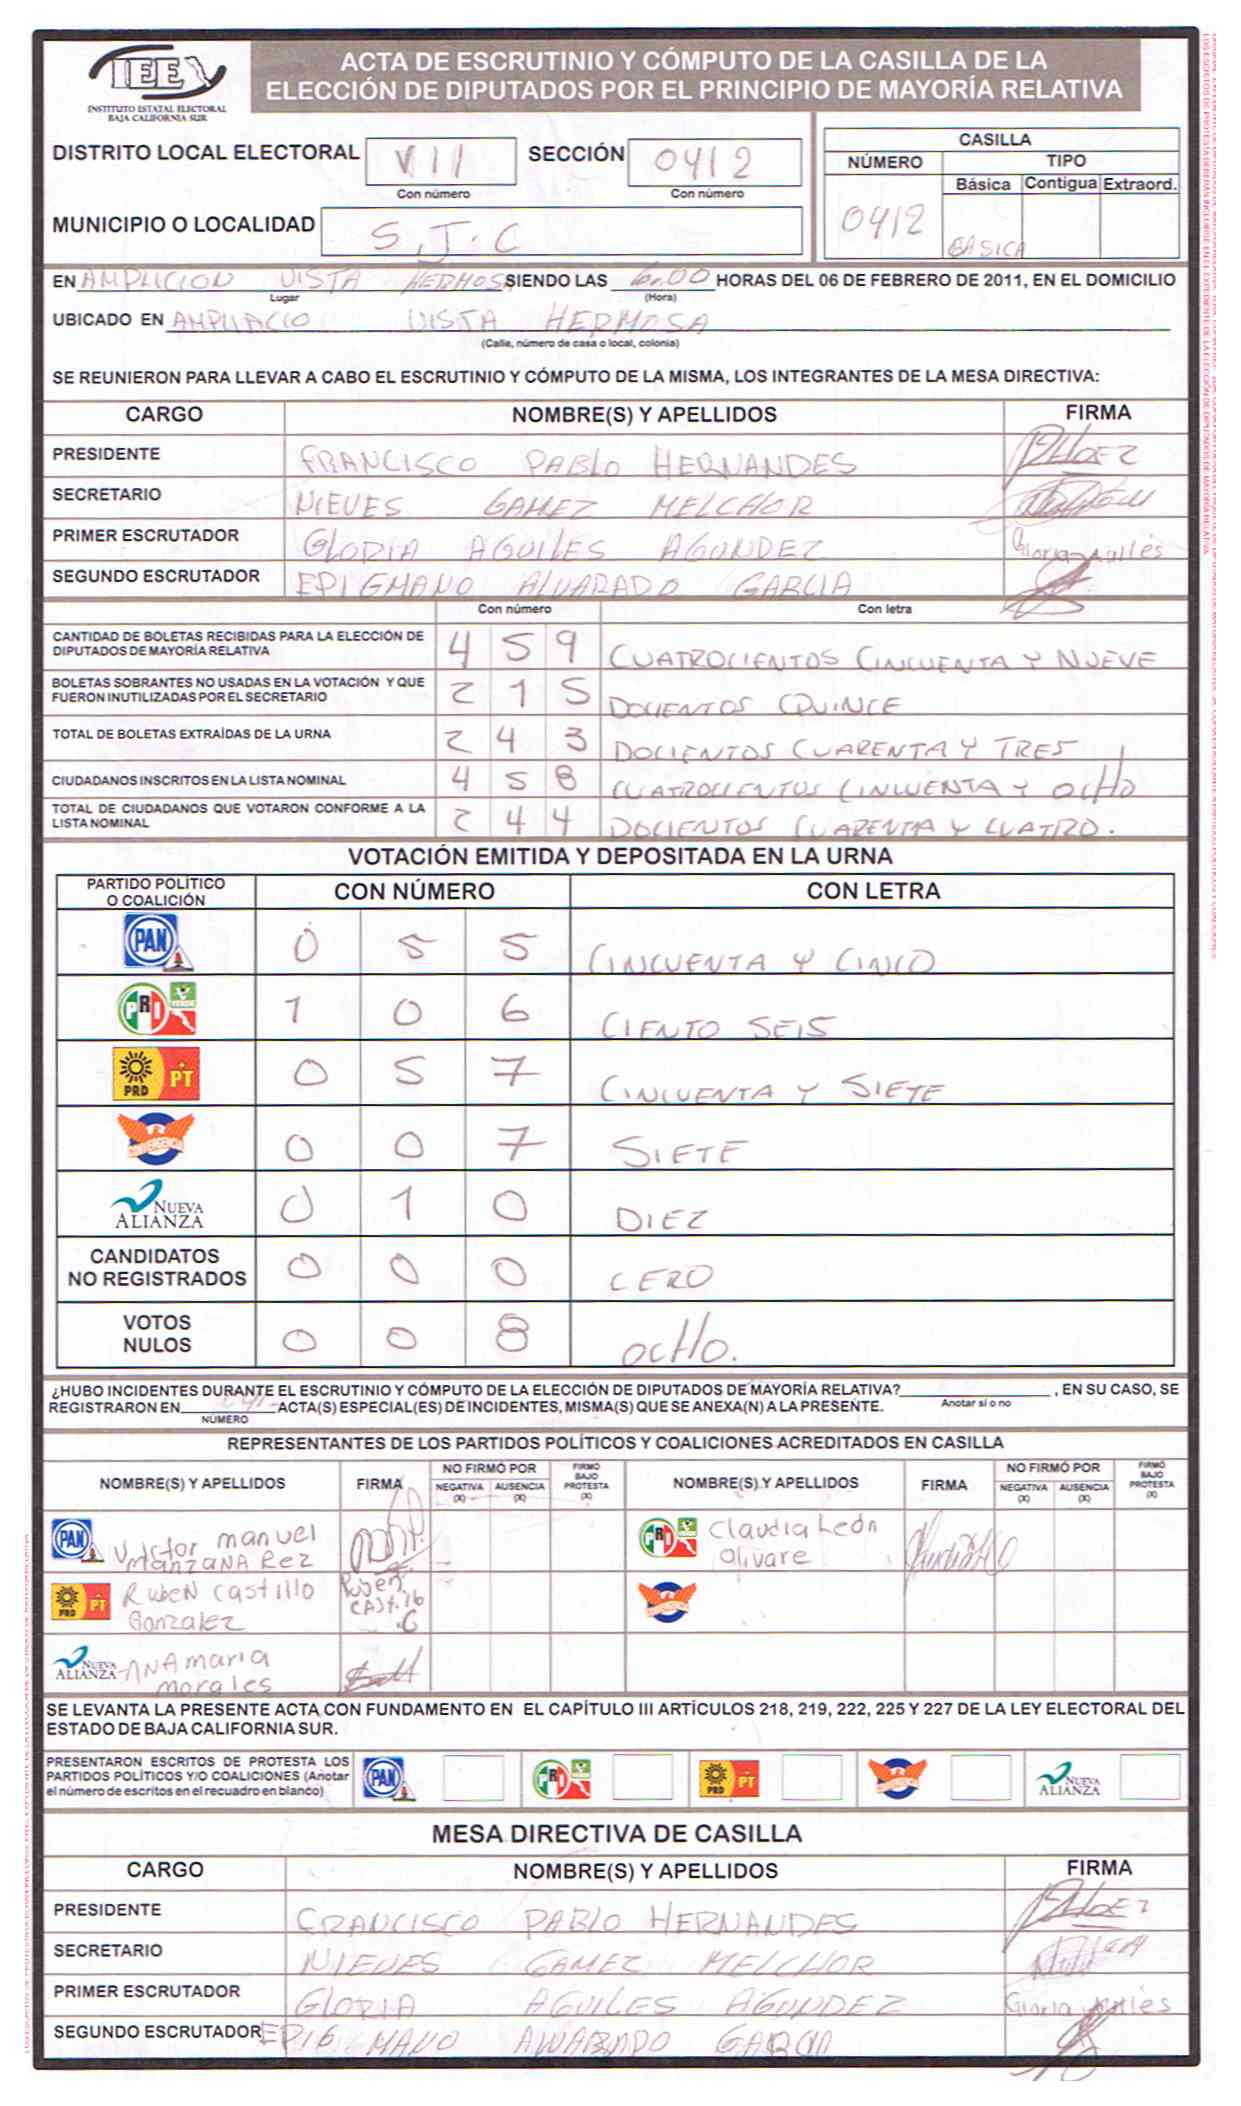 IEE
INSTITUTO ESTATAL ELECTORAL
BAJA CALIFORNIA SUR
ACTA DE ESCRUTINIO Y CÓMPUTO DE LA CASILLA DE LA
ELECCIÓN DE DIPUTADOS POR EL PRINCIPIO DE MAYORÍA RELATIVA
DISTRITO LOCAL ELECTORAL VII SECCIÓN 0412
Con número Con número
MUNICIPIO O LOCALIDAD S.J.C
CASILLA
NÚMERO TIPO
Básica Contigua Extraord.
0412 BASICA
EN AMPLICION VISTA HERMOSA SIENDO LAS 6:00 HORAS DEL 06 DE FEBRERO DE 2011, EN EL DOMICILIO
Lugar (Hora)
UBICADO EN AMPLIACIO VISTA HERMOSA
(Calle, número de casa o local, colonia)
SE REUNIERON PARA LLEVAR A CABO EL ESCRUTINIO Y CÓMPUTO DE LA MISMA, LOS INTEGRANTES DE LA MESA DIRECTIVA:
CARGO NOMBRE(S) Y APELLIDOS FIRMA
PRESIDENTE FRANCISCO PABLO HERNANDES
SECRETARIO NIEVES GAMEZ MELCHOR
PRIMER ESCRUTADOR GLORIA AGUILES AGUNDEZ
SEGUNDO ESCRUTADOR EPIGMANO ALVARADO GARCIA
Con número Con letra
CANTIDAD DE BOLETAS RECIBIDAS PARA LA ELECCIÓN DE
DIPUTADOS DE MAYORÍA RELATIVA 4 5 9 CUATROCIENTOS CINCUENTA Y NUEVE
BOLETAS SOBRANTES NO USADAS EN LA VOTACIÓN Y QUE
FUERON INUTILIZADAS POR EL SECRETARIO 2 1 5 DOCIENTOS QUINCE
TOTAL DE BOLETAS EXTRAÍDAS DE LA URNA 2 4 3 DOCIENTOS CUARENTA Y TRES
CIUDADANOS INSCRITOS EN LA LISTA NOMINAL 4 5 8 CUATROCIENTOS CINCUENTA Y OCHO
TOTAL DE CIUDADANOS QUE VOTARON CONFORME A LA
LISTA NOMINAL 2 4 4 DOCIENTOS CUARENTA Y CUATRO.
VOTACIÓN EMITIDA Y DEPOSITADA EN LA URNA
PARTIDO POLÍTICO
O COALICIÓN CON NÚMERO CON LETRA
PAN 0 5 5 CINCUENTA Y CINCO
PRI 1 0 6 CIENTO SEIS
PRD PT 0 5 7 CINCUENTA Y SIETE
CONVERGENCIA 0 0 7 SIETE
NUEVA
ALIANZA 0 1 0 DIEZ
CANDIDATOS
NO REGISTRADOS 0 0 0 CERO
VOTOS
NULOS 0 0 8 OCHO.
¿HUBO INCIDENTES DURANTE EL ESCRUTINIO Y CÓMPUTO DE LA ELECCIÓN DE DIPUTADOS DE MAYORÍA RELATIVA? , EN SU CASO, SE
Anotar sí o no
REGISTRARON EN ACTA(S) ESPECIAL(ES) DE INCIDENTES, MISMA(S) QUE SE ANEXA(N) A LA PRESENTE.
NÚMERO
REPRESENTANTES DE LOS PARTIDOS POLÍTICOS Y COALICIONES ACREDITADOS EN CASILLA
NOMBRE(S) Y APELLIDOS FIRMA NO FIRMÓ POR NEGATIVA (X) AUSENCIA (X) FIRMÓ BAJO PROTESTA (X) NOMBRE(S) Y APELLIDOS FIRMA NO FIRMÓ POR NEGATIVA (X) AUSENCIA (X) FIRMÓ BAJO PROTESTA (X)
PAN Victor manuel
manzanaRez
PRI Claudia León
Olivare
PRD PT RubeN Castillo
Gonzalez
NUEVA
ALIANZA ANAmaria
morales
SE LEVANTA LA PRESENTE ACTA CON FUNDAMENTO EN EL CAPÍTULO III ARTÍCULOS 218, 219, 222, 225 Y 227 DE LA LEY ELECTORAL DEL
ESTADO DE BAJA CALIFORNIA SUR.
PRESENTARON ESCRITOS DE PROTESTA LOS
PARTIDOS POLÍTICOS Y/O COALICIONES (Anotar
el número de escritos en el recuadro en blanco)
PAN PRI PRD PT NUEVA ALIANZA
MESA DIRECTIVA DE CASILLA
CARGO NOMBRE(S) Y APELLIDOS FIRMA
PRESIDENTE FRANCISCO PABLO HERNANDES
SECRETARIO NIEVES GAMEZ MELCHOR
PRIMER ESCRUTADOR GLORIA AGUILES AGUNDEZ
SEGUNDO ESCRUTADOR EPIGMANO ALVARADO GARCIA